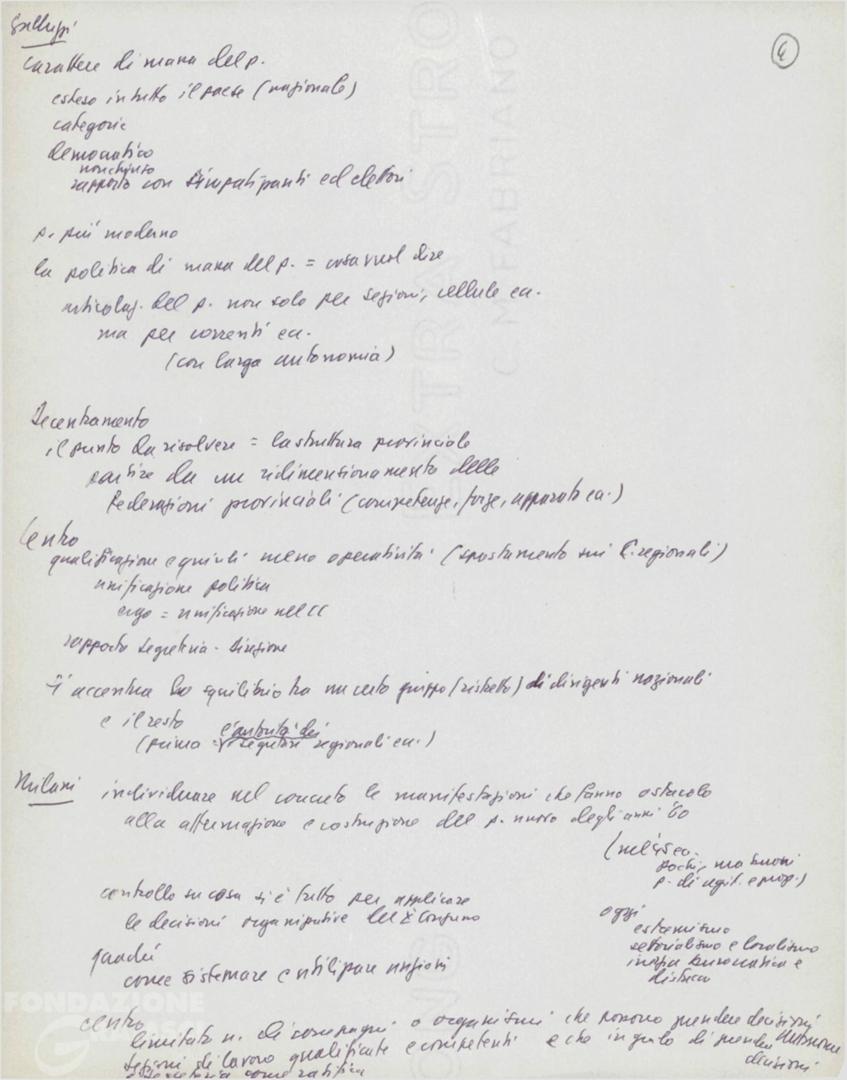 Galluppi
4
carattere di massa del p.
esteso in tutto il paese (nazionale)
categorie
democratico
non chiuso
rapporto con simpatizzanti ed elettori
p. più moderno
la politica di massa del p. = cosa vuol dire
articolaz. del p. non solo per sezioni, cellule ecc.
ma per correnti ecc.
(con larga autonomia)
Decentramento
il punto da risolvere = la struttura provinciale
partire da un ridimensionamento delle
Federazioni provinciali (competenze, forze, apparato ecc.)
Centro
qualificazione e quindi meno operatività (spostamento sui C. regionali)
unificazione politica
ergo = unificazione nel CC
rapporto Segreteria - Direzione
si accentua lo squilibrio tra un certo gruppo (ristretto) di dirigenti nazionali
e il resto
l'autorità dei
(prima = segretari regionali ecc.)
Milani individuare nel concreto le manifestazioni che fanno ostacolo
alla affermazione e costruzione del p. nuovo degli anni 60
(nel 45 ecc.
pochi, ma buoni
p. di agit. e prop.)
controllo su cosa si è fatto per applicare
le decisioni organizzative del X Congresso
oggi
estremismo
settorialismo e localismo
inerzia burocratica e
quadri
come sistemare e utilizzare anziani
FONDAZIONE
centro
limitato n. di compagni o organismi che possono prendere decisioni
sezioni di lavoro qualificate e competenti e che in grado di prendere
decisioni
e segreteria come ratifica
EXTRA STRO
C. M. FABRIANO